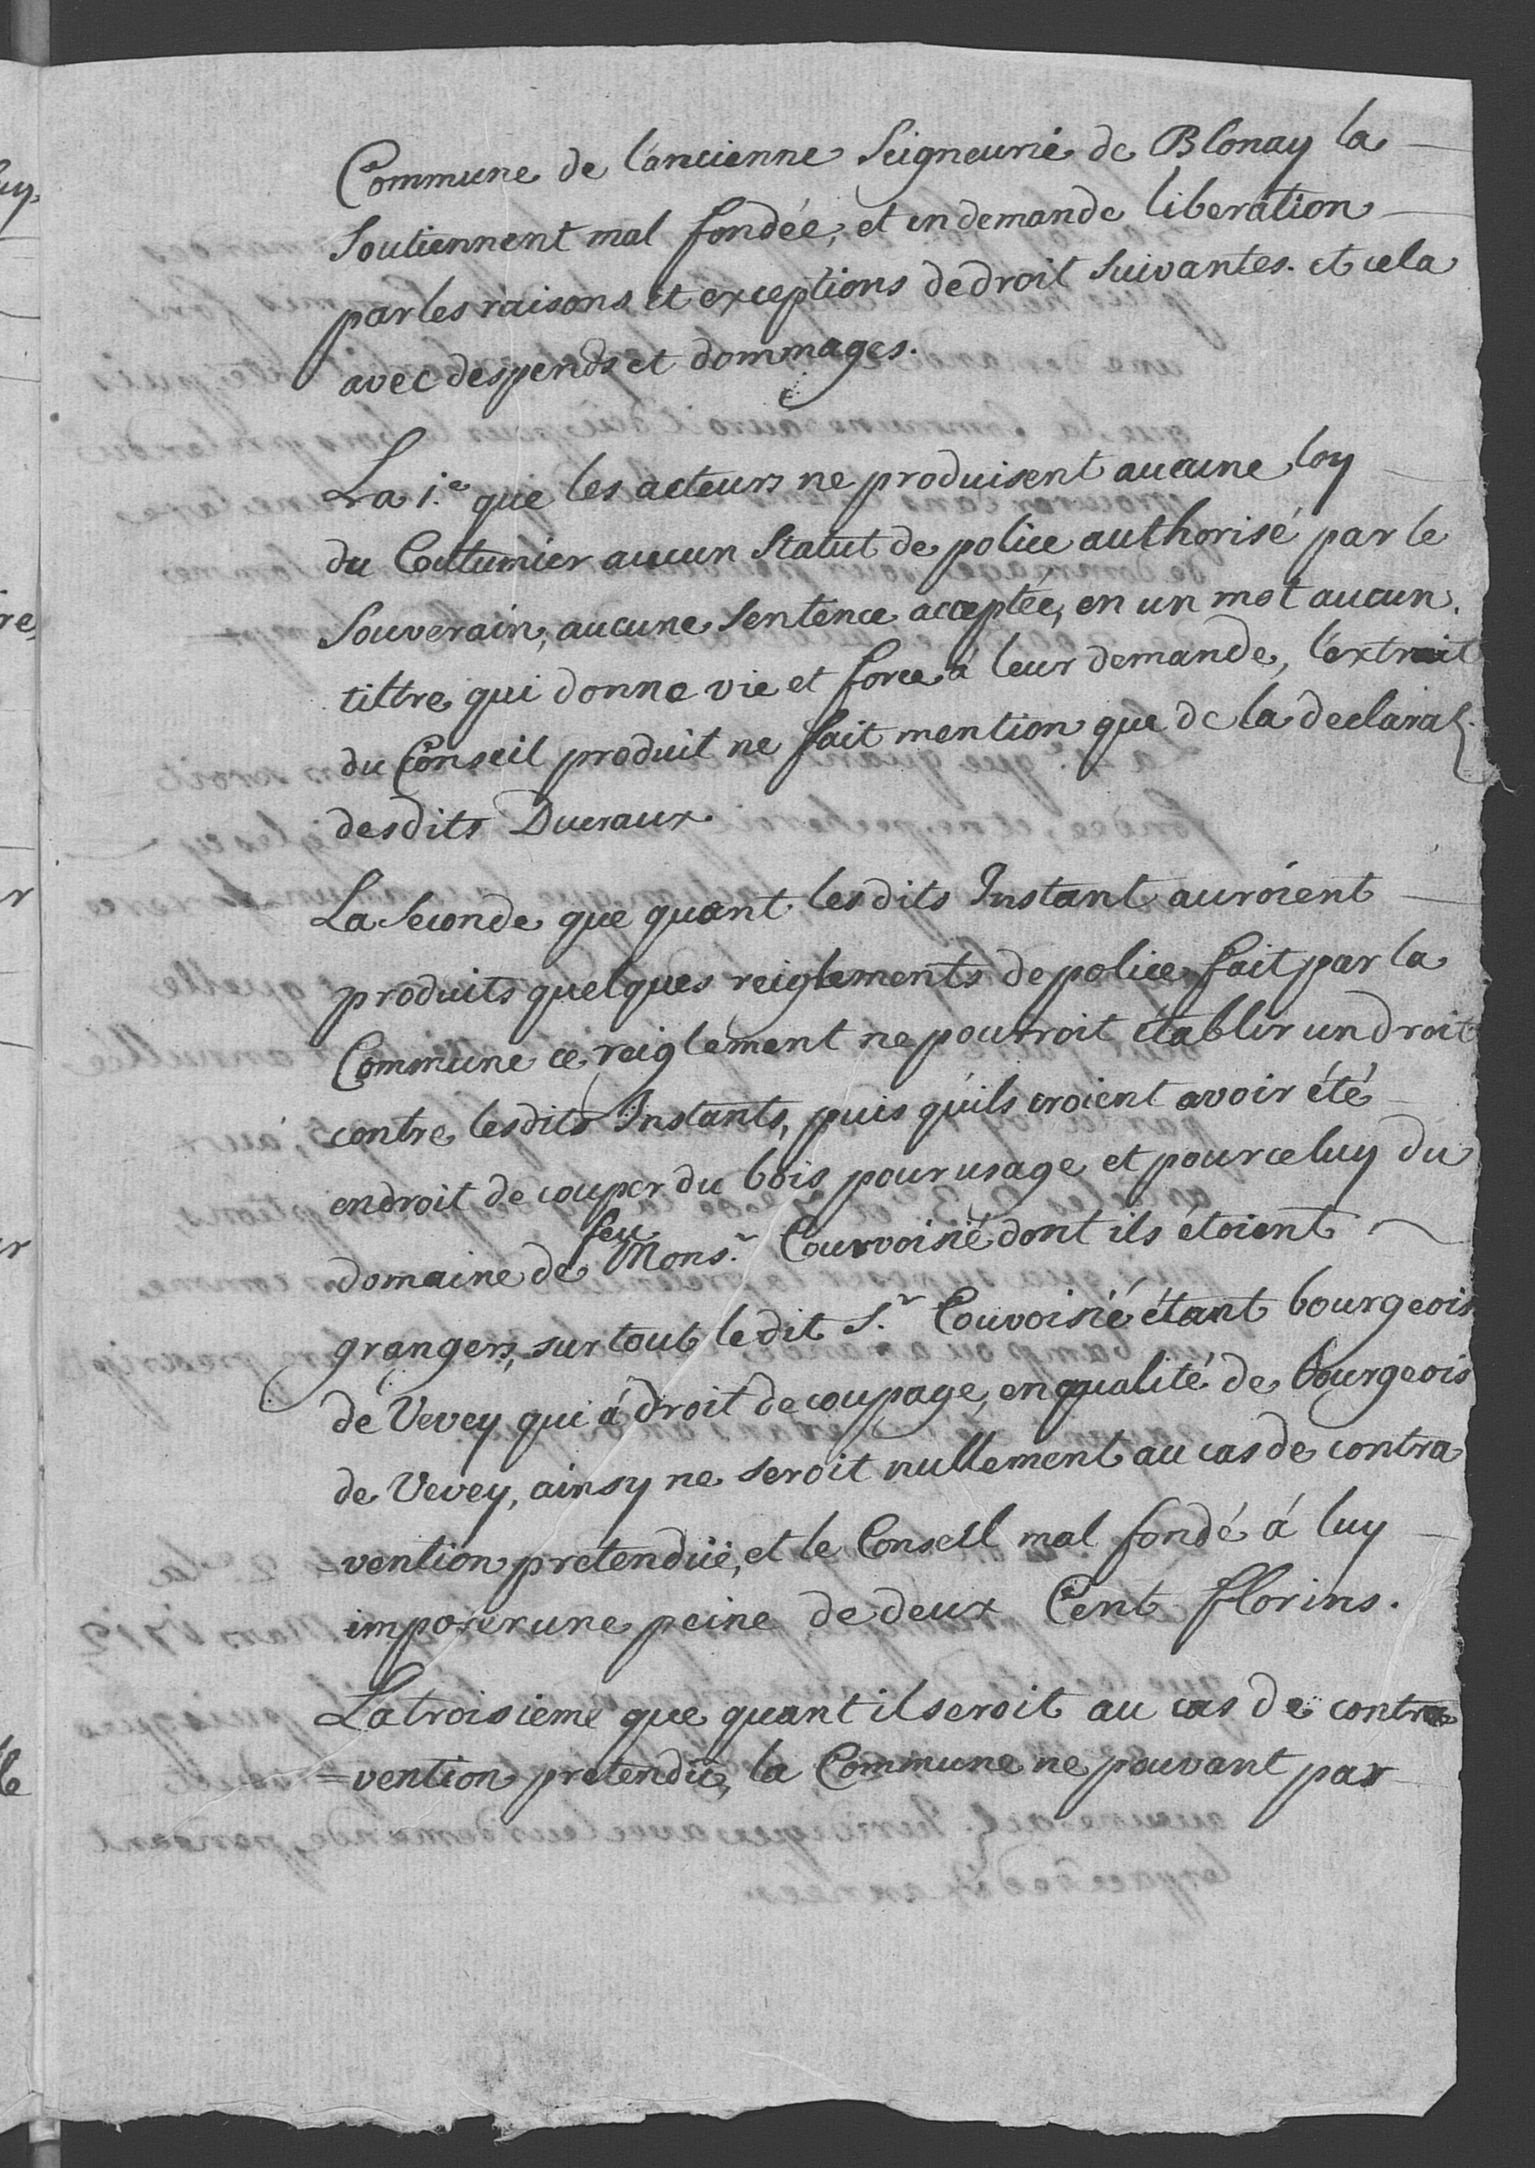 Commune de l'ancienne Seigneurie de Blonay la
Soutiennent mal fondée, et en demande liberation
par les raisons et exceptions de droit suivantes. et cela
avec despends et dommages.
La 1.e que les acteurs ne produisent aucune loy
du Coutumier aucun Statut de police authorisé par le
Souverain, aucune Sentence acceptée, en un mot aucun
tiltre qui donne vie et force á leur demande, l'extrait
du Conseil produit ne fait mention que de la declarat.
desdits Ducraux.
La Seconde que quant lesdits Instant auroient
produits quelques reiglements de police fait par la
Commune ce reiglement ne pourroit établir un droit
contre lesdits Instants, puis qu'ils croient avoir été
en droit de couper du bois pour usage et pour celuy du
domaine de feu Mons.r Courvoisié dont ils étoient
grangers, sur tout le dit S.r Couvoisié étant bourgeois
de Vevey qui á droit de coupage, en qualité de bourgeois
de Vevey, ainsy ne seroit nullement au cas de contra
=vention prétendüe, et le Conseil mal fondé á luy
imposer une peine de deux Cent florins.
La troisieme que quant il seroit au cas de contra
=vention pretendüe, la Commune ne pouvant par